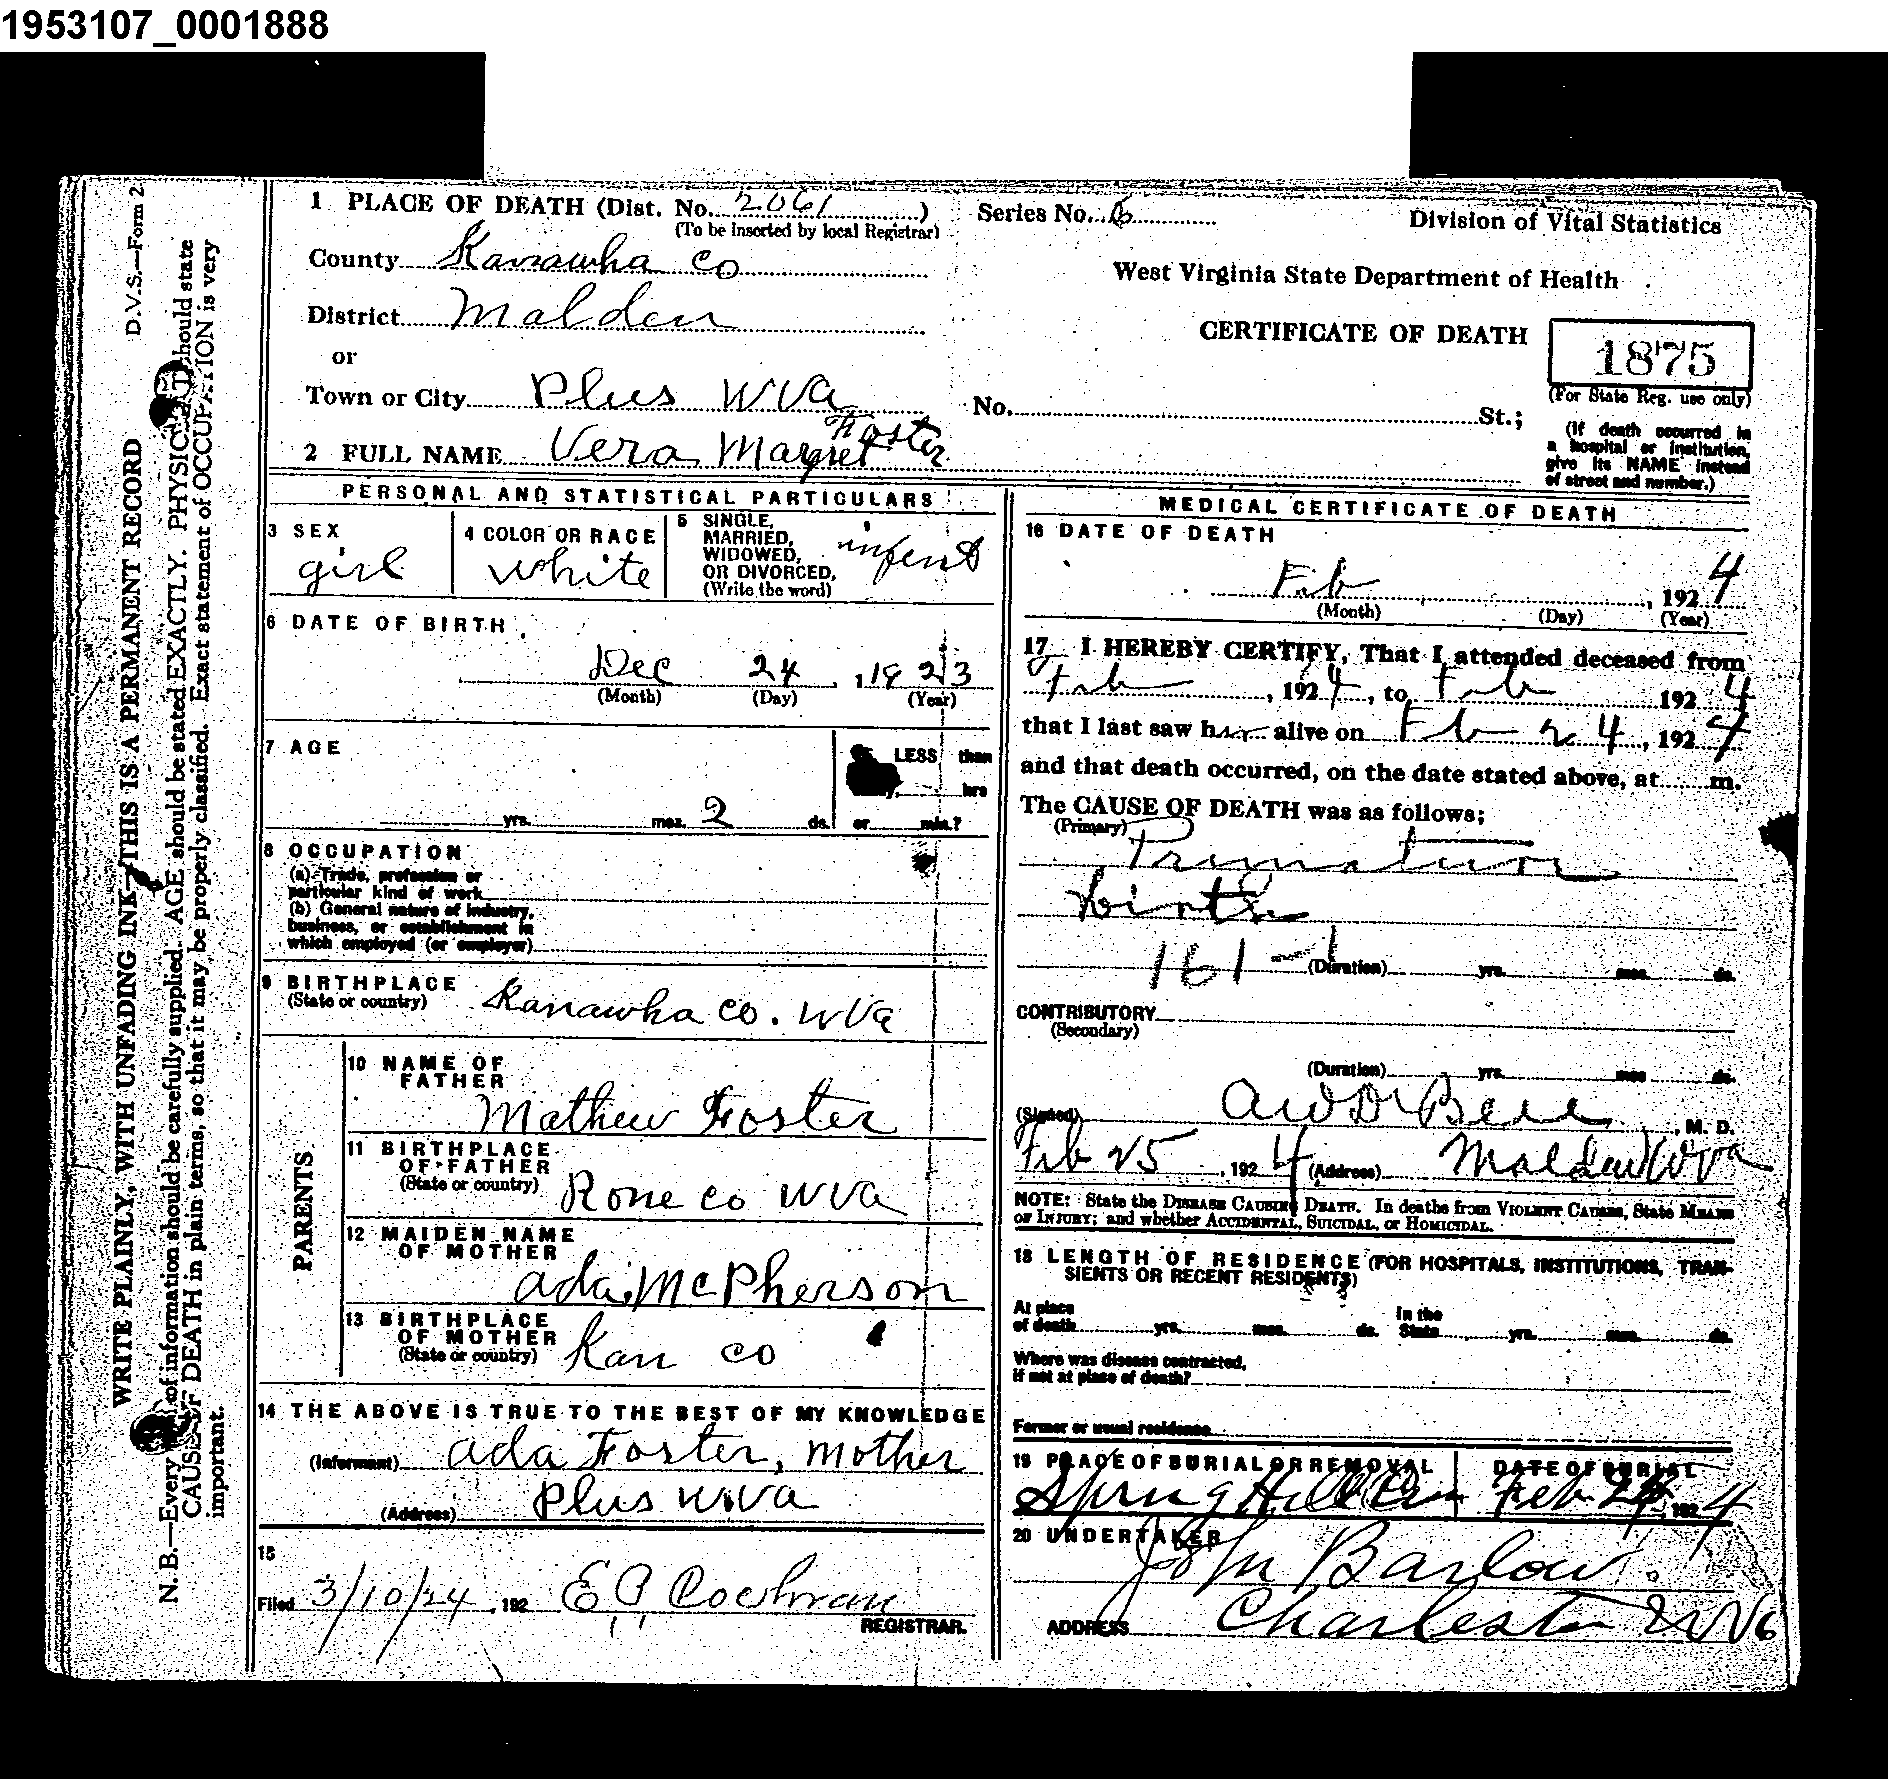 1953107_0001888
D.V.S.—Form 2
WRITE PLAINLY, WITH UNFADING INK—THIS IS A PERMANENT RECORD
N. B.—Every of information should be carefully supplied. AGE should be stated EXACTLY. PHYSIC should state
CAUSE OF DEATH in plain terms, so that it may be properly classified. Exact statement of OCCUPATION is very
important.
1 PLACE OF DEATH (Dist. No. 2061 )
(To be inserted by local Registrar)
Series No. 6
Division of Vital Statistics
County Kanawha Co
West Virginia State Department of Health
District Malden
CERTIFICATE OF DEATH
1875
(For State Reg. use only)
or
Town or City Plus W Va
No. St.;
(If death occurred in
a hospital or institution,
give its NAME instead
of street and number.)
2 FULL NAME Vera Margret Foster
PERSONAL AND STATISTICAL PARTICULARS
3 SEX
girl
4 COLOR OR RACE
white
5 SINGLE,
MARRIED,
WIDOWED,
OR DIVORCED,
(Write the word)
infent
6 DATE OF BIRTH
Dec 24, 1923
(Month) (Day) (Year)
7 AGE
yrs. mos. 2 ds.
LESS than
hrs
or min.?
8 OCCUPATION
(a) Trade, profession or
particular kind of work
(b) General nature of industry,
business, or establishment in
which employed (or employer)
9 BIRTHPLACE
(State or country) Kanawha Co. W Va
PARENTS
10 NAME OF
FATHER
Mathew Foster
11 BIRTHPLACE
OF FATHER
(State or country) Rone Co W Va
12 MAIDEN NAME
OF MOTHER
Ada McPherson
13 BIRTHPLACE
OF MOTHER
(State or country) Kan Co
14 THE ABOVE IS TRUE TO THE BEST OF MY KNOWLEDGE
(Informant) Ada Foster, Mother
(Address) Plus W.Va
15
Filed 3/10/24, 192 E. P. Cochran
REGISTRAR.
MEDICAL CERTIFICATE OF DEATH
16 DATE OF DEATH
Feb, 1924
(Month) (Day) (Year)
17 I HEREBY CERTIFY, That I attended deceased from
Feb, 1924, to Feb 1924
that I last saw her alive on Feb 24, 1924
and that death occurred, on the date stated above, at m.
The CAUSE OF DEATH was as follows;
(Primary)
Premature
birth
161-1
(Duration) yrs. mos. ds.
CONTRIBUTORY
(Secondary)
(Duration) yrs. mos. ds.
(Signed) , M. D.
Feb 25, 1924 (Address) Malden W Va
NOTE: State the DISEASE CAUSING DEATH. In deaths from VIOLENT CAUSES, State MEANS
OF INJURY; and whether ACCIDENTAL, SUICIDAL, or HOMICIDAL.
18 LENGTH OF RESIDENCE (FOR HOSPITALS, INSTITUTIONS, TRAN-
SIENTS OR RECENT RESIDENTS)
At place
of death yrs. mos. ds.
In the
State yrs. mos. ds.
Where was disease contracted,
if not at place of death?
Former or usual residence
19 PLACE OF BURIAL OR REMOVAL
Spring Hill Cem
DATE OF BURIAL
Feb 24, 1924
20 UNDERTAKER
John Barlow
ADDRESS Charleston W Va